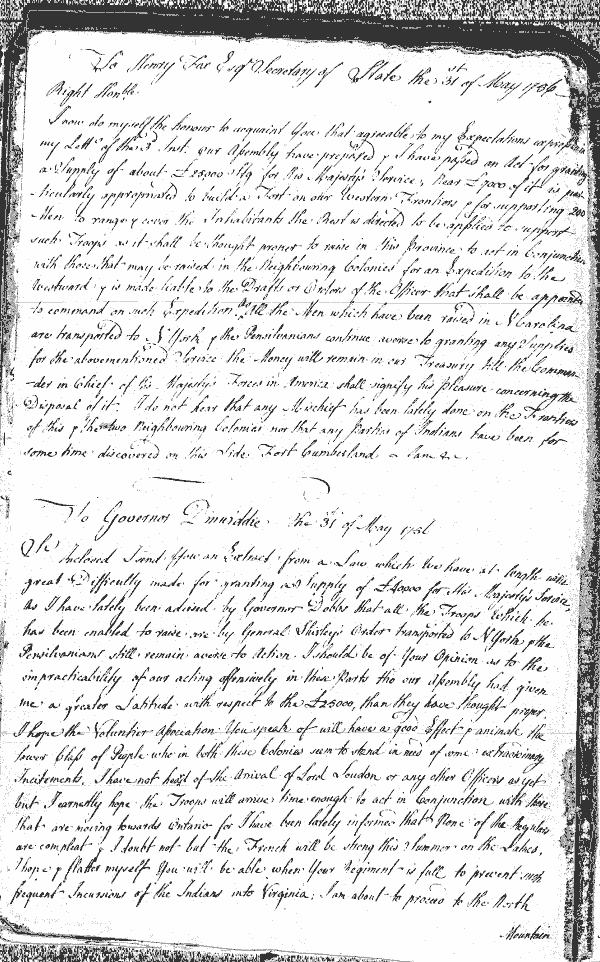 To Henry Fox Esqr. Secretary of State the 31st of May 1756
Right Honble.
I now do myself the honour to acquaint You that agreable to my Expectations expressed in
my Letter of the 3 Inst. our Assembly have prepared & I have passed an Act for granting
a Supply of about £25000 Stg for his Majesty's Service, Near £7000 of it is par-
-ticularly appropriated to build a Fort on our Western Frontiers & for supporting 200
Men to range & cover the Inhabitants the Rest is directed to be applied to support
such Troops as it shall be thought proper to raise in this Province to act in Conjunction
with those that may be raised in the Neighbouring Colonies for an Expedition to the
Westward & is made liable to the Drafts or Orders of the Officer that shall be appointed
to command on such Expedition. But till the Men which have been raised in N Carolina
are transported to N York & the Pensilvanians continue averse to granting any Supplies
for the abovementioned Service the Money will remain in our Treasury till the Comman-
-der in Chief of his Majesty's Forces in America shall signify his pleasure concerning the
Disposal of it. I do not hear that any Mischief has been lately done on the Frontiers
of this & the two Neighbouring Colonies nor that any Parties of Indians have been for
some time discovered on this Side Fort Cumberland. I am &c.
To Governor Dinwiddie the 31st of May 1756
Sr.
Inclosed I send You an Extract from a Law which We have at length with
great Difficulty made for granting a Supply of £40000 for His Majesty's Service,
As I have lately been advised by Governor Dobbs that all the Troops which he
has been enabled to raise are by General Shirley's Order transported to N York & the
Pensilvanians still remain averse to Action I should be of Your Opinion as to the
impracticability of our acting offensively in these Parts tho our Assembly had given
me a greater Latitude with respect to the £25000, than they have thought proper.
I hope the Voluntier Association You speak of will have a good Effect & animate the
lower Class of People who in both these Colonies seem to stand in need of some extraordinary
Incitements. I have not heard of the Arrival of Lord Loudon or any other Officers as yet
but I earnestly hope the Troops will arrive time enough to act in Conjunction with those
that are moving towards Ontario for I have been lately informed that None of the Regulars
are compleat & I doubt not but the French will be strong this Summer on the Lakes.
I hope & flatter myself You will be able when Your Regiment is full to prevent such
frequent Incursions of the Indians into Virginia; I am about to proceed to the North
Mountain